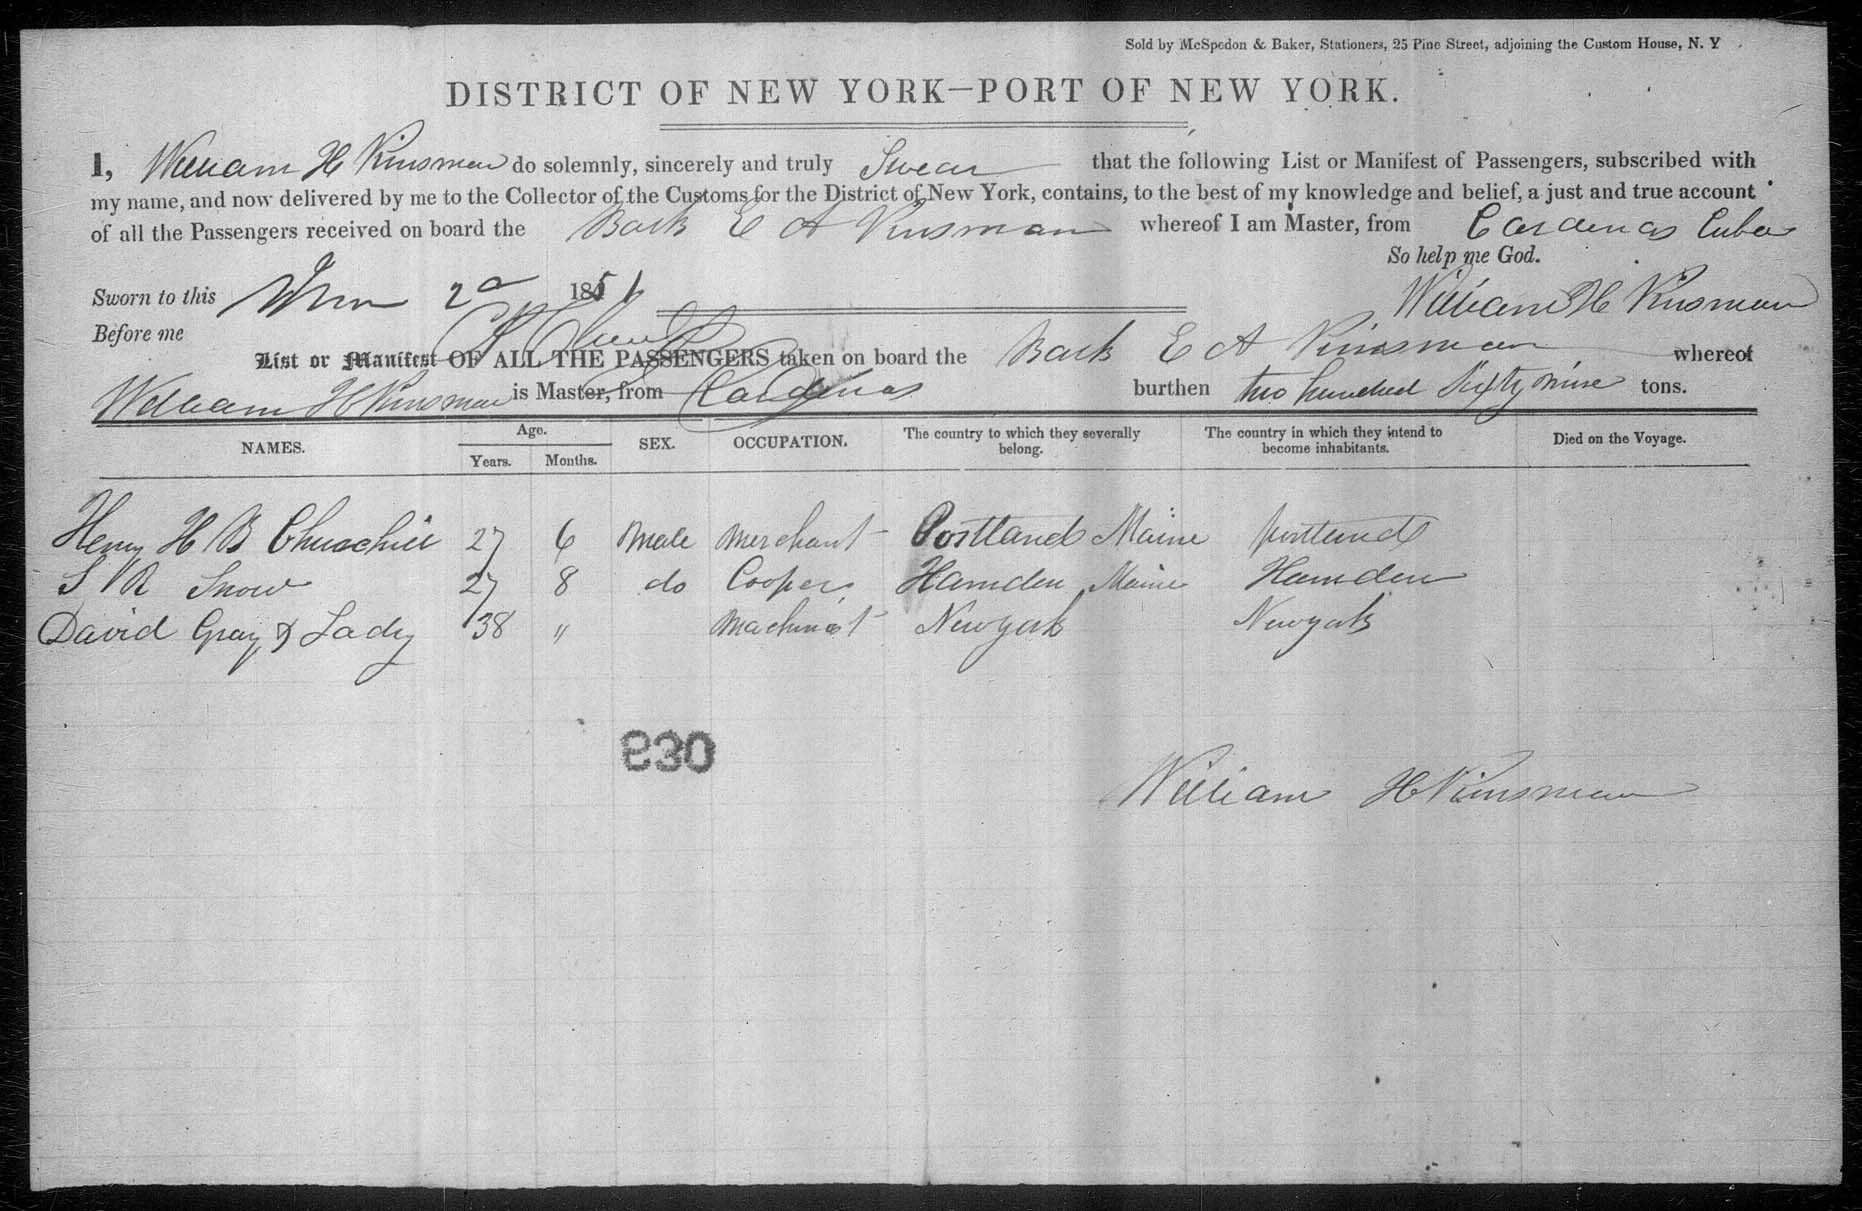 Sold by McSpedon & Baker, Stationers, 25 Pine Street, adjoining the Custom House, N. Y
DISTRICT OF NEW YORK—PORT OF NEW YORK.
I, William H Kinsman do solemnly, sincerely and truly Swear that the following List or Manifest of Passengers, subscribed with
my name, and now delivered by me to the Collector of the Customs for the District of New York, contains, to the best of my knowledge and belief, a just and true account
of all the Passengers received on board the Bark E A Kinsman whereof I am Master, from Cardenas Cuba
So help me God.
Sworn to this 2d 1851 William H Kinsman
Before me
List or Manifest OF ALL THE PASSENGERS taken on board the Bark E A Kinsman whereof
William H Kinsman is Master, from Cardenas burthen two hundred Sixty nine tons.
NAMES. Age. Years. Months. SEX. OCCUPATION. The country to which they severally belong. The country in which they intend to become inhabitants. Died on the Voyage.
Henry H B Churchill 27 6 Male Merchant Portland Maine portland
S R Snow 27 8 do Cooper Hamden Maine Hamden
David Gray & Lady 38 " Machinist Newyork Newyork
830
William H Kinsman